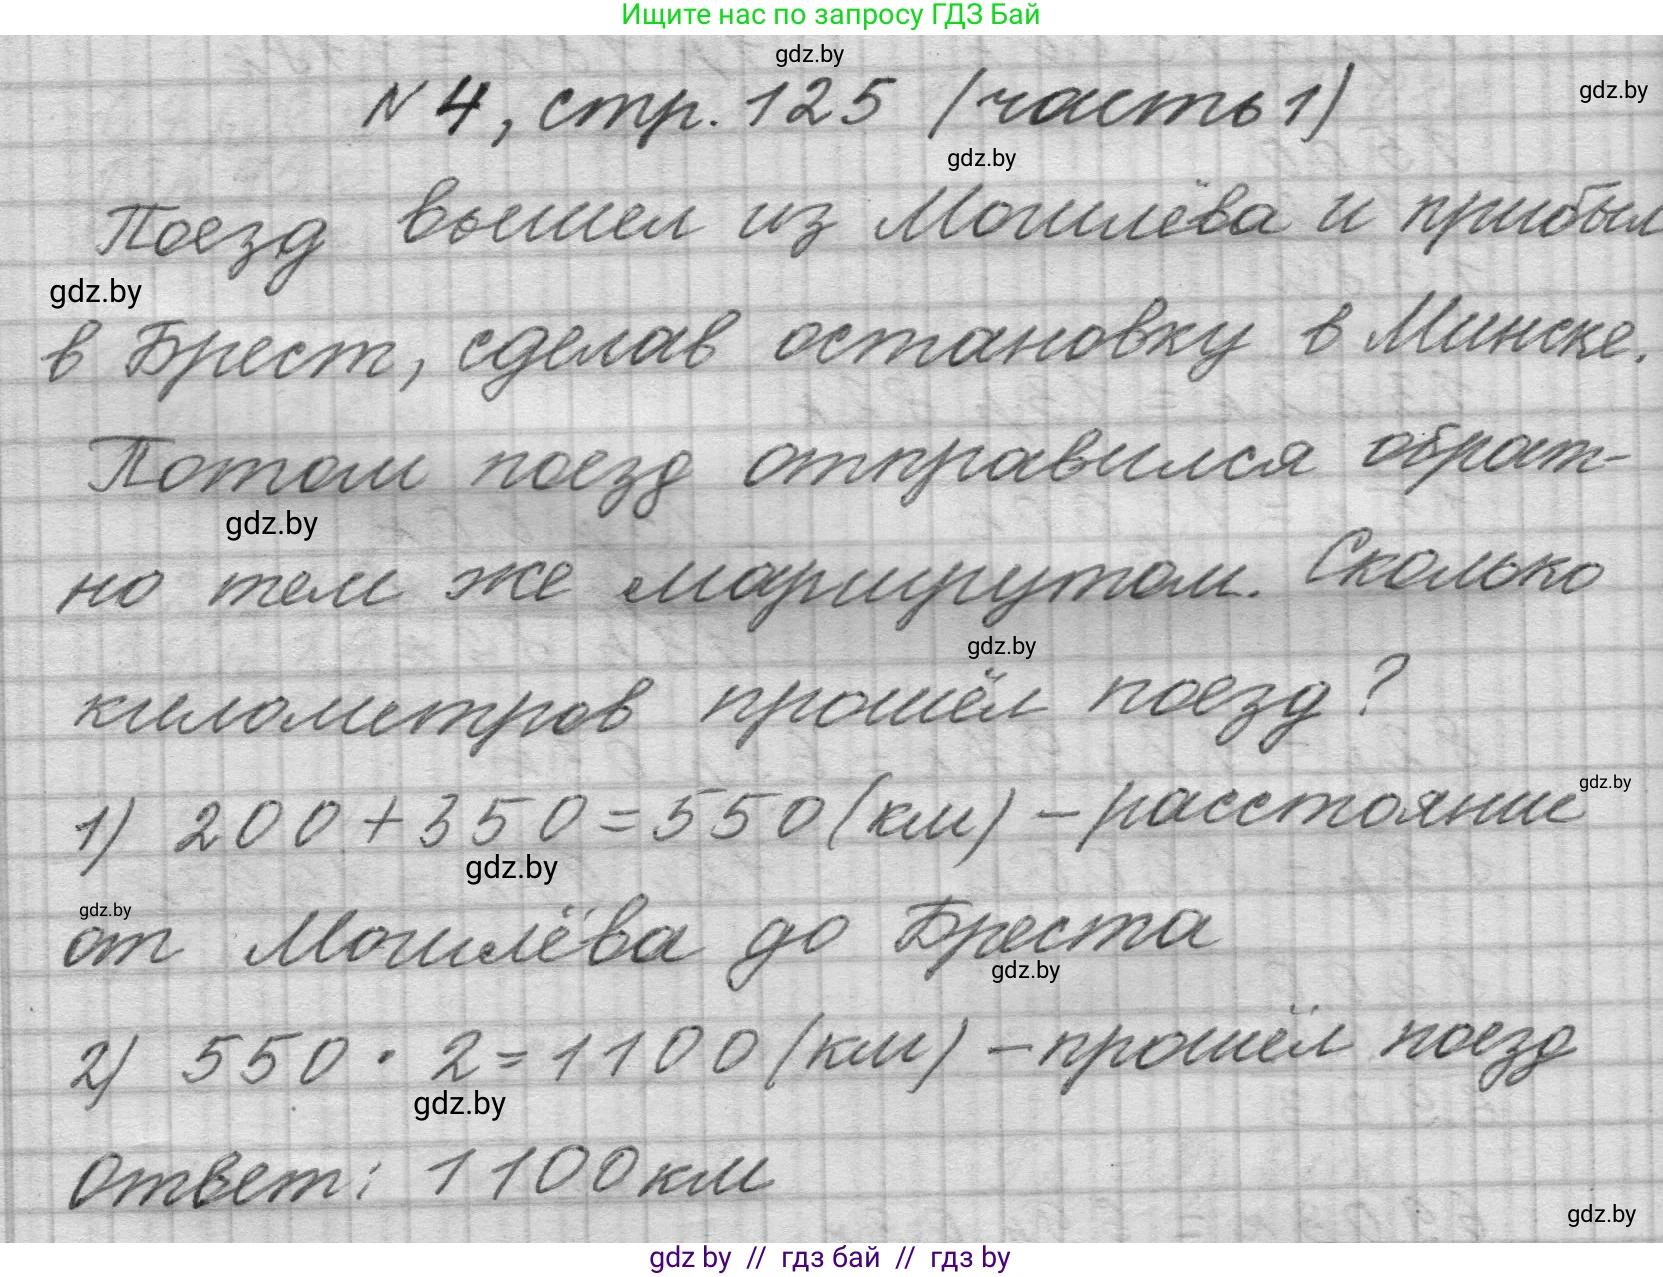 Ищите нас по запросу ГДЗ Бай
gdz.by
№ 4, стр. 125 (часть 1)
gdz.by
gdz.by
Поезд вышел из Могилёва и прибыл
gdz.by
в Брест, сделав остановку в Минске.
Потом поезд отправился обрат-
gdz.by
но тем же маршрутом. Сколько
gdz.by
километров прошёл поезд?
gdz.by
1) 200 + 350 = 550 (км) - расстояние
gdz.by
gdz.by
от Могилёва до Бреста
gdz.by
2) 550 · 2 = 1100 (км) - прошёл поезд
gdz.by
Ответ: 1100 км
gdz.by
gdz by // гдз бай // гдз by